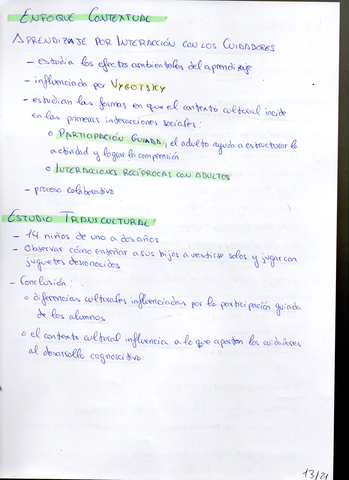 ENFOQUE CONTEXTUAL
APRENDIZAJE POR INTERACCIÓN CON LOS CUIDADORES
- estudia los efectos ambientales del aprendizaje
- influenciada por VYGOTSKY
- estudian las formas en que el contexto cultural incide
en las primeras interacciones sociales:
o PARTICIPACIÓN GUIADA, el adulto ayuda a estructurar la
actividad y lograr la comprensión
o INTERACCIONES RECÍPROCAS CON ADULTOS
- proceso colaborativo
ESTUDIO TRANSCULTURAL
- 14 niños de uno a dos años
- Observar cómo enseñar a sus hijos a vestirse solos y jugar con
juguetes desconocidos
- Conclusión:
o diferencias culturales influenciadas por la participación guiada
de los alumnos
o el contexto cultural influencia a lo que aportan los cuidadores
al desarrollo cognoscitivo
13/21